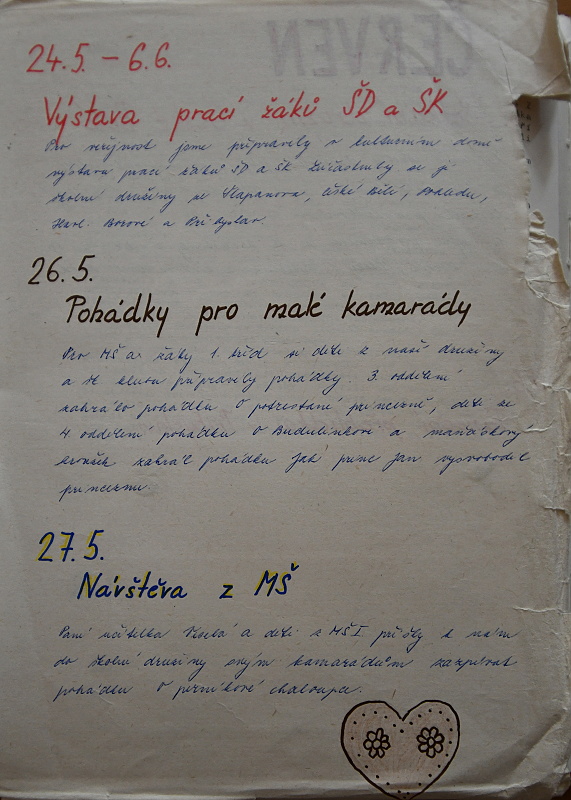 ČERVEN
24.5. – 6.6.
Výstava prací žáků ŠD a ŠK
Pro veřejnost jsme připravily v kulturním domě
výstavu prací žáků ŠD a ŠK. Zúčastnily se jí
školní družiny ze Šlapanova, České Bělé,
Havl. Borové a Přibyslav.
26.5.
Pohádky pro malé kamarády
Pro MŠ a žáky 1. tříd si děti z naší družiny
a šk. klubu připravily pohádky. 3. oddělení
zahrálo pohádku O potrestané princezně, děti ze
4. oddělení pohádku O Budulínkovi a maňáskový
kroužek zahrál pohádku Jak princ Jan vysvobodil
princeznu.
27.5.
Návštěva z MŠ
Paní učitelka Veselá a děti z MŠ I přišly k nám
do školní družiny svým kamarádům zazpívat
pohádku O perníkové chaloupce.